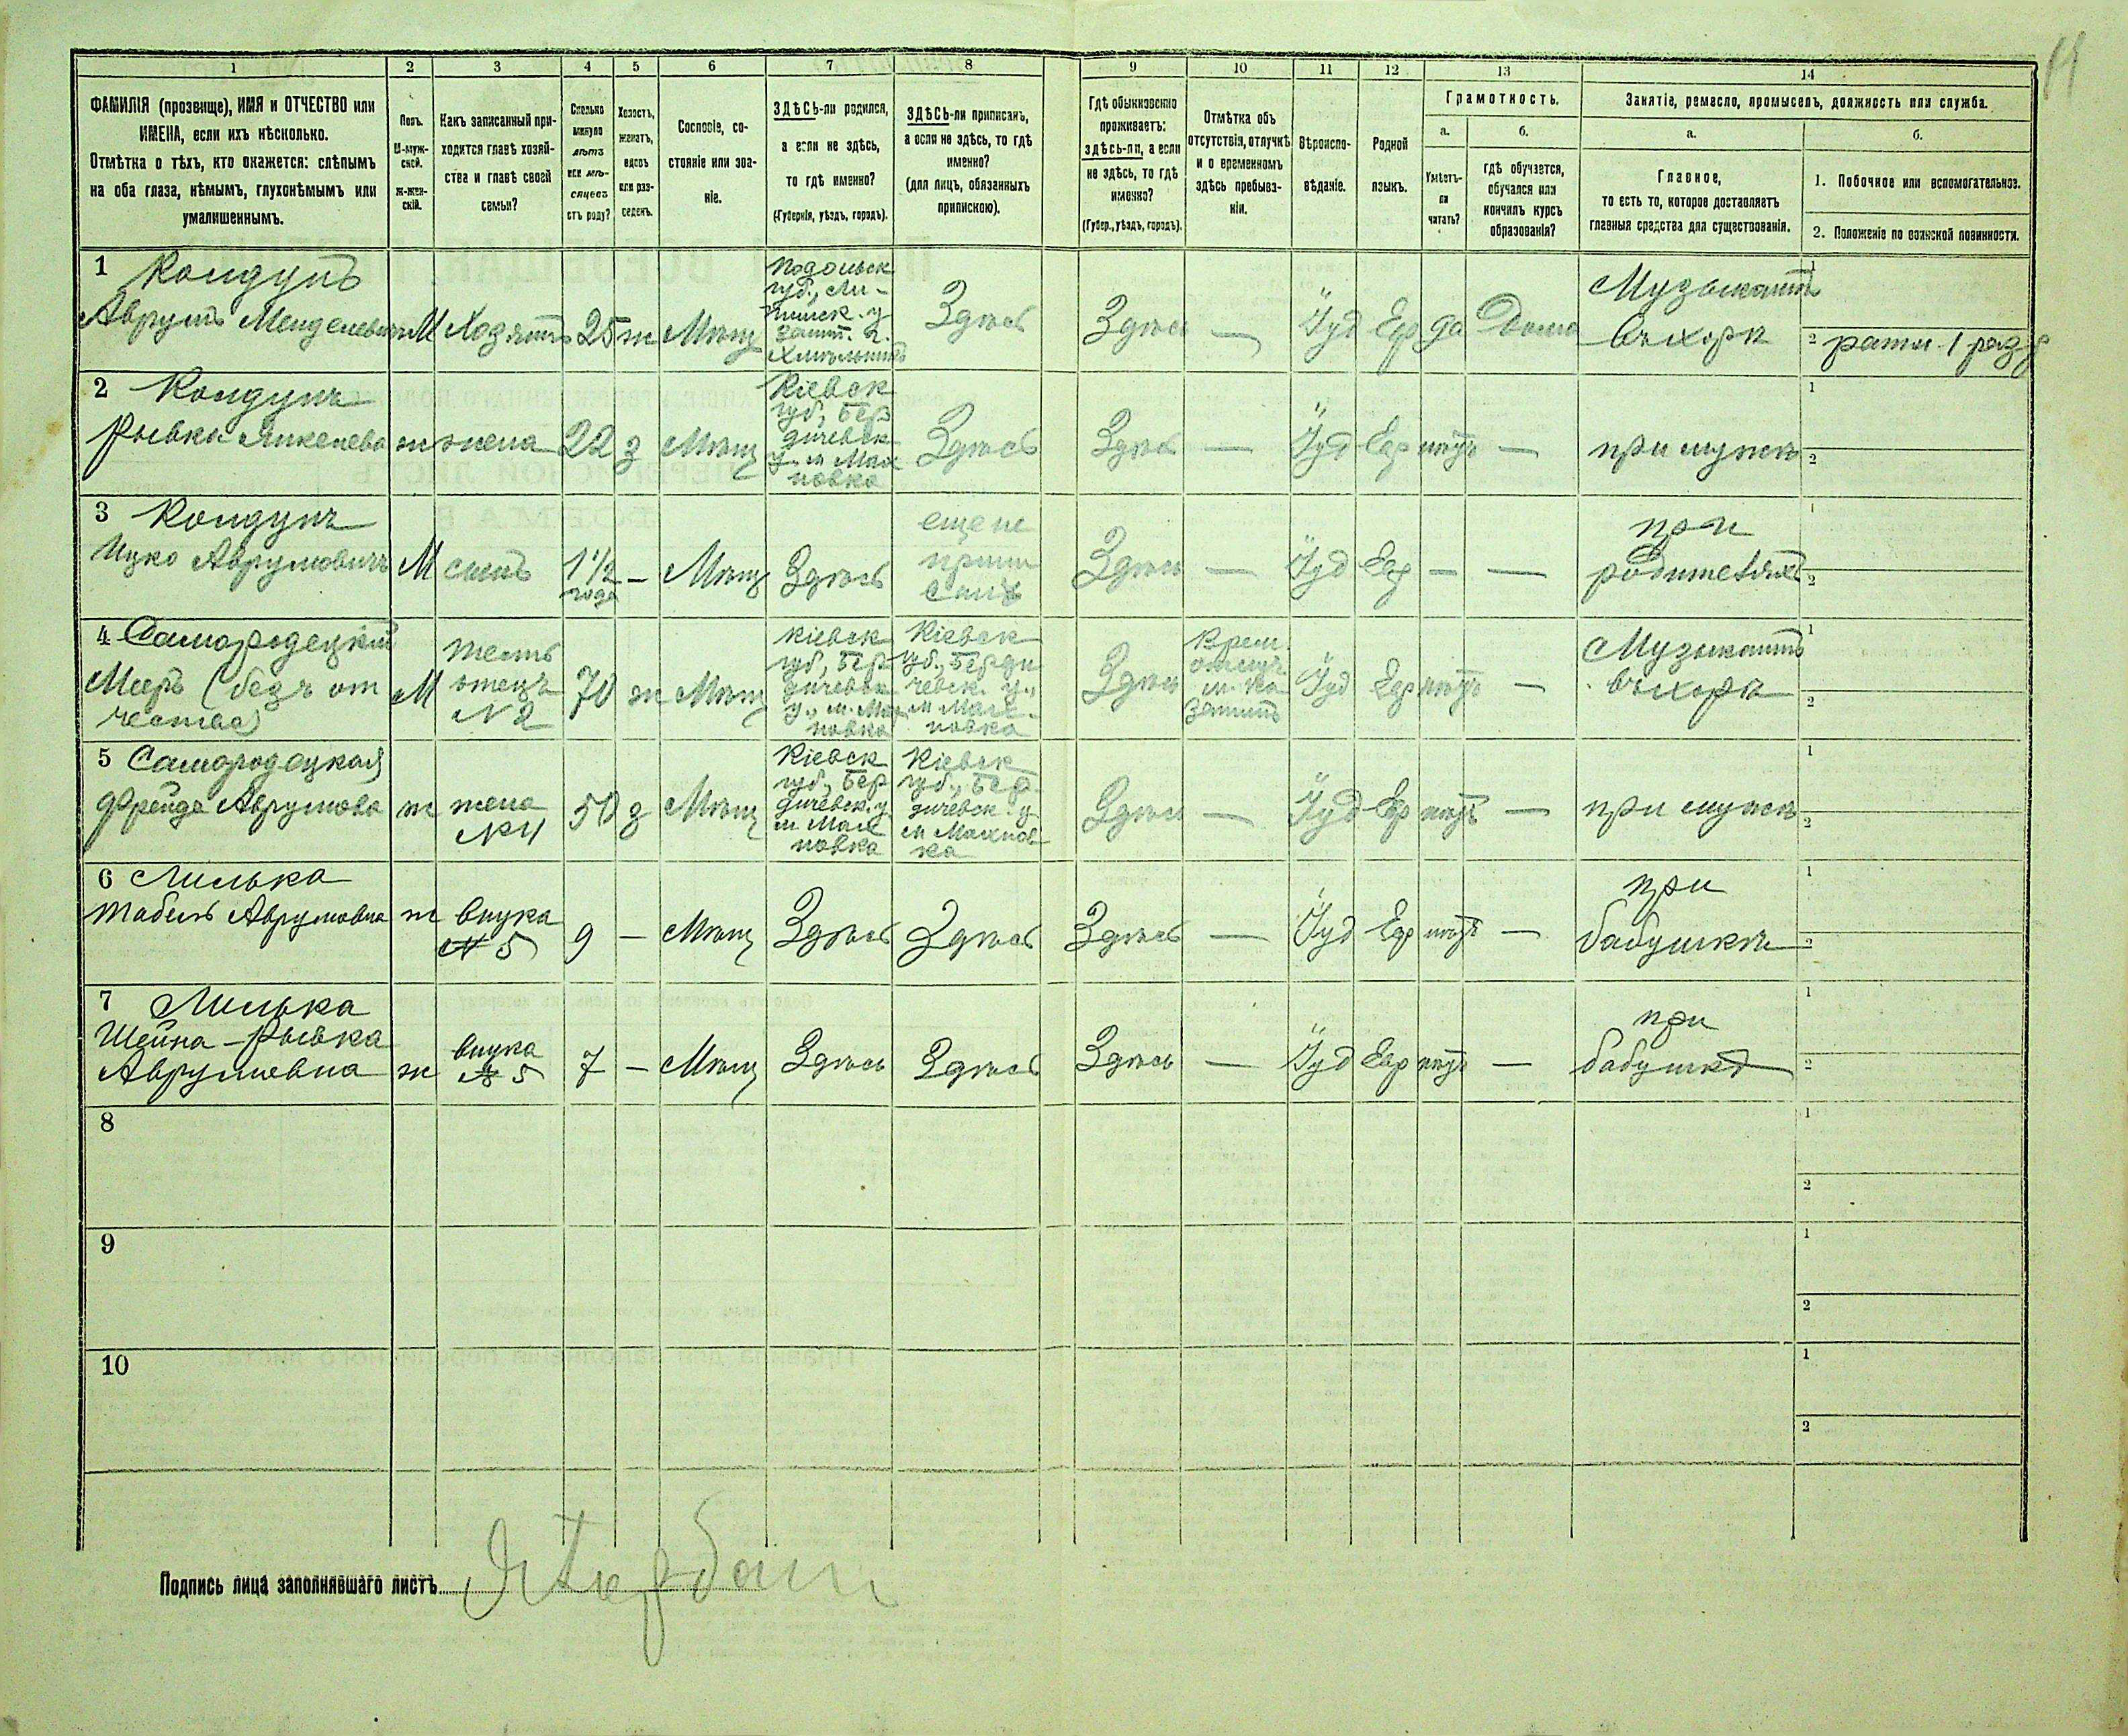 14
1 2 3 4 5 6 7 8 9 10 11 12 13 14
ФАМИЛІЯ (прозвище), ИМЯ и ОТЧЕСТВО или
ИМЕНА, если ихъ нѣсколько.
Отмѣтка о тѣхъ, кто окажется: слѣпымъ
на оба глаза, нѣмымъ, глухонѣмымъ или
умалишеннымъ.
Полъ.
М-муж-
ской.
ж-жен-
скій.
Какъ записанный при-
ходится главѣ хозяй-
ства и главѣ своей
семьи?
Сколько
минуло
лѣтъ
или мѣ-
сяцевъ
отъ роду?
Холостъ,
женатъ,
вдовъ
или раз-
веденъ.
Сословіе, со-
стояніе или зва-
ніе.
ЗДѢСЬ-ли родился,
а если не здѣсь,
то гдѣ именно?
(Губернія, уѣздъ, городъ).
ЗДѢСЬ-ли приписанъ,
а если не здѣсь, то гдѣ
именно?
(для лицъ, обязанныхъ
припискою).
Гдѣ обыкновенно
проживаетъ:
здѣсь-ли, а если
не здѣсь, то гдѣ
именно?
(Губер., уѣздъ, городъ).
Отмѣтка объ
отсутствіи, отлучкѣ
и о временномъ
здѣсь пребыва-
ніи.
Вѣроиспо-
вѣданіе.
Родной
языкъ.
Грамотность.
а.
Умѣетъ-
ли
читать?
б.
гдѣ обучается,
обучался или
кончилъ курсъ
образованія?
Занятіе, ремесло, промыселъ, должность или служба.
а.
Главное,
то есть то, которое доставляетъ
главныя средства для существованія.
б.
1. Побочное или вспомогательное.
2. Положеніе по воинской повинности.
1 Колдунъ
Аврумъ Менделевичъ
М
Хозяинъ
25
ж
Мѣщ
Подольск
губ., Ли-
тинск. у
зашт. г.
Хмѣльникъ
Здѣсь
Здѣсь
—
Іуд
Евр
да
Дома
Музыкантъ
въ хорѣ
1
2 ратн. 1 разр
2 Колдунъ
Рывка
ж
жена
22
з
Мѣщ
Кіевск
губ., Бер
дичевск
у. м Мах
новка
Здѣсь
Здѣсь
—
Іуд
Евр
нѣтъ
—
при мужѣ
1
2
3 Колдунъ
Ицко Аврумовичъ
М
сынъ
1 1/2
года
—
Мѣщ
Здѣсь
еще не
припи
санъ
Здѣсь
—
Іуд
Евр
—
—
при
родителяхъ
1
2
4 Самородецкій
Мееръ (безъ от
чества)
М
тесть
отецъ
N 2
70
ж
Мѣщ
Кіевск
губ., Бер
дичевск
у., м. Мах
новка
Кіевск
губ., Берди
чевск. у.,
м Мах-
новка
Здѣсь
Іуд
Евр
нѣтъ
—
Музыкантъ
въ хорѣ
1
2
5 Самородецкая
Фрейда Аврумова
ж
жена
N 4
50
з
Мѣщ
Кіевск
губ., Бер
дичевск. у.
м Мах
новка
Кіевск
губ., Бер
дичевск. у
м Махнов
ка
Здѣсь
—
Іуд
Евр
нѣтъ
—
при мужѣ
1
2
6 Лилька
Табель Аврумовна
ж
внука
N 5
9
—
Мѣщ
Здѣсь
Здѣсь
Здѣсь
—
Іуд
Евр
нѣтъ
—
при
бабушкѣ
1
2
7 Лилька
Шейна-Рывка
Аврумовна
ж
внука
N 5
7
—
Мѣщ
Здѣсь
Здѣсь
Здѣсь
—
Іуд
Евр
нѣтъ
—
при
бабушкѣ
1
2
8
1
2
9
1
2
10
1
2
Подпись лица заполнявшаго листъ